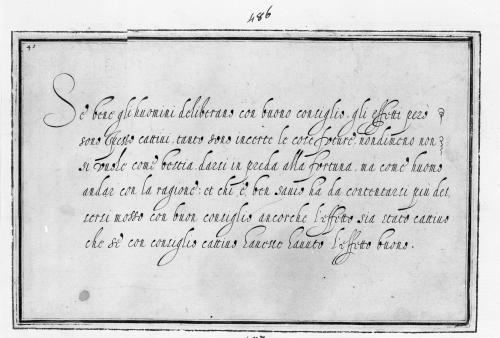 486
41
Se bene gli huomini deliberano con buono consiglio, gli effetti però
sono spesso cattivi, tanto sono incerte le cose future, nondimeno non
si vuole come bestia darsi in preda alla fortuna, ma come huomo
andar con la ragione: et chi è ben savio ha da contentarsi più del
sersi mosso con buon consiglio ancorche l'effetto sia stato cattivo
che se con consiglio cattivo havesse havuto l'effetto buono.